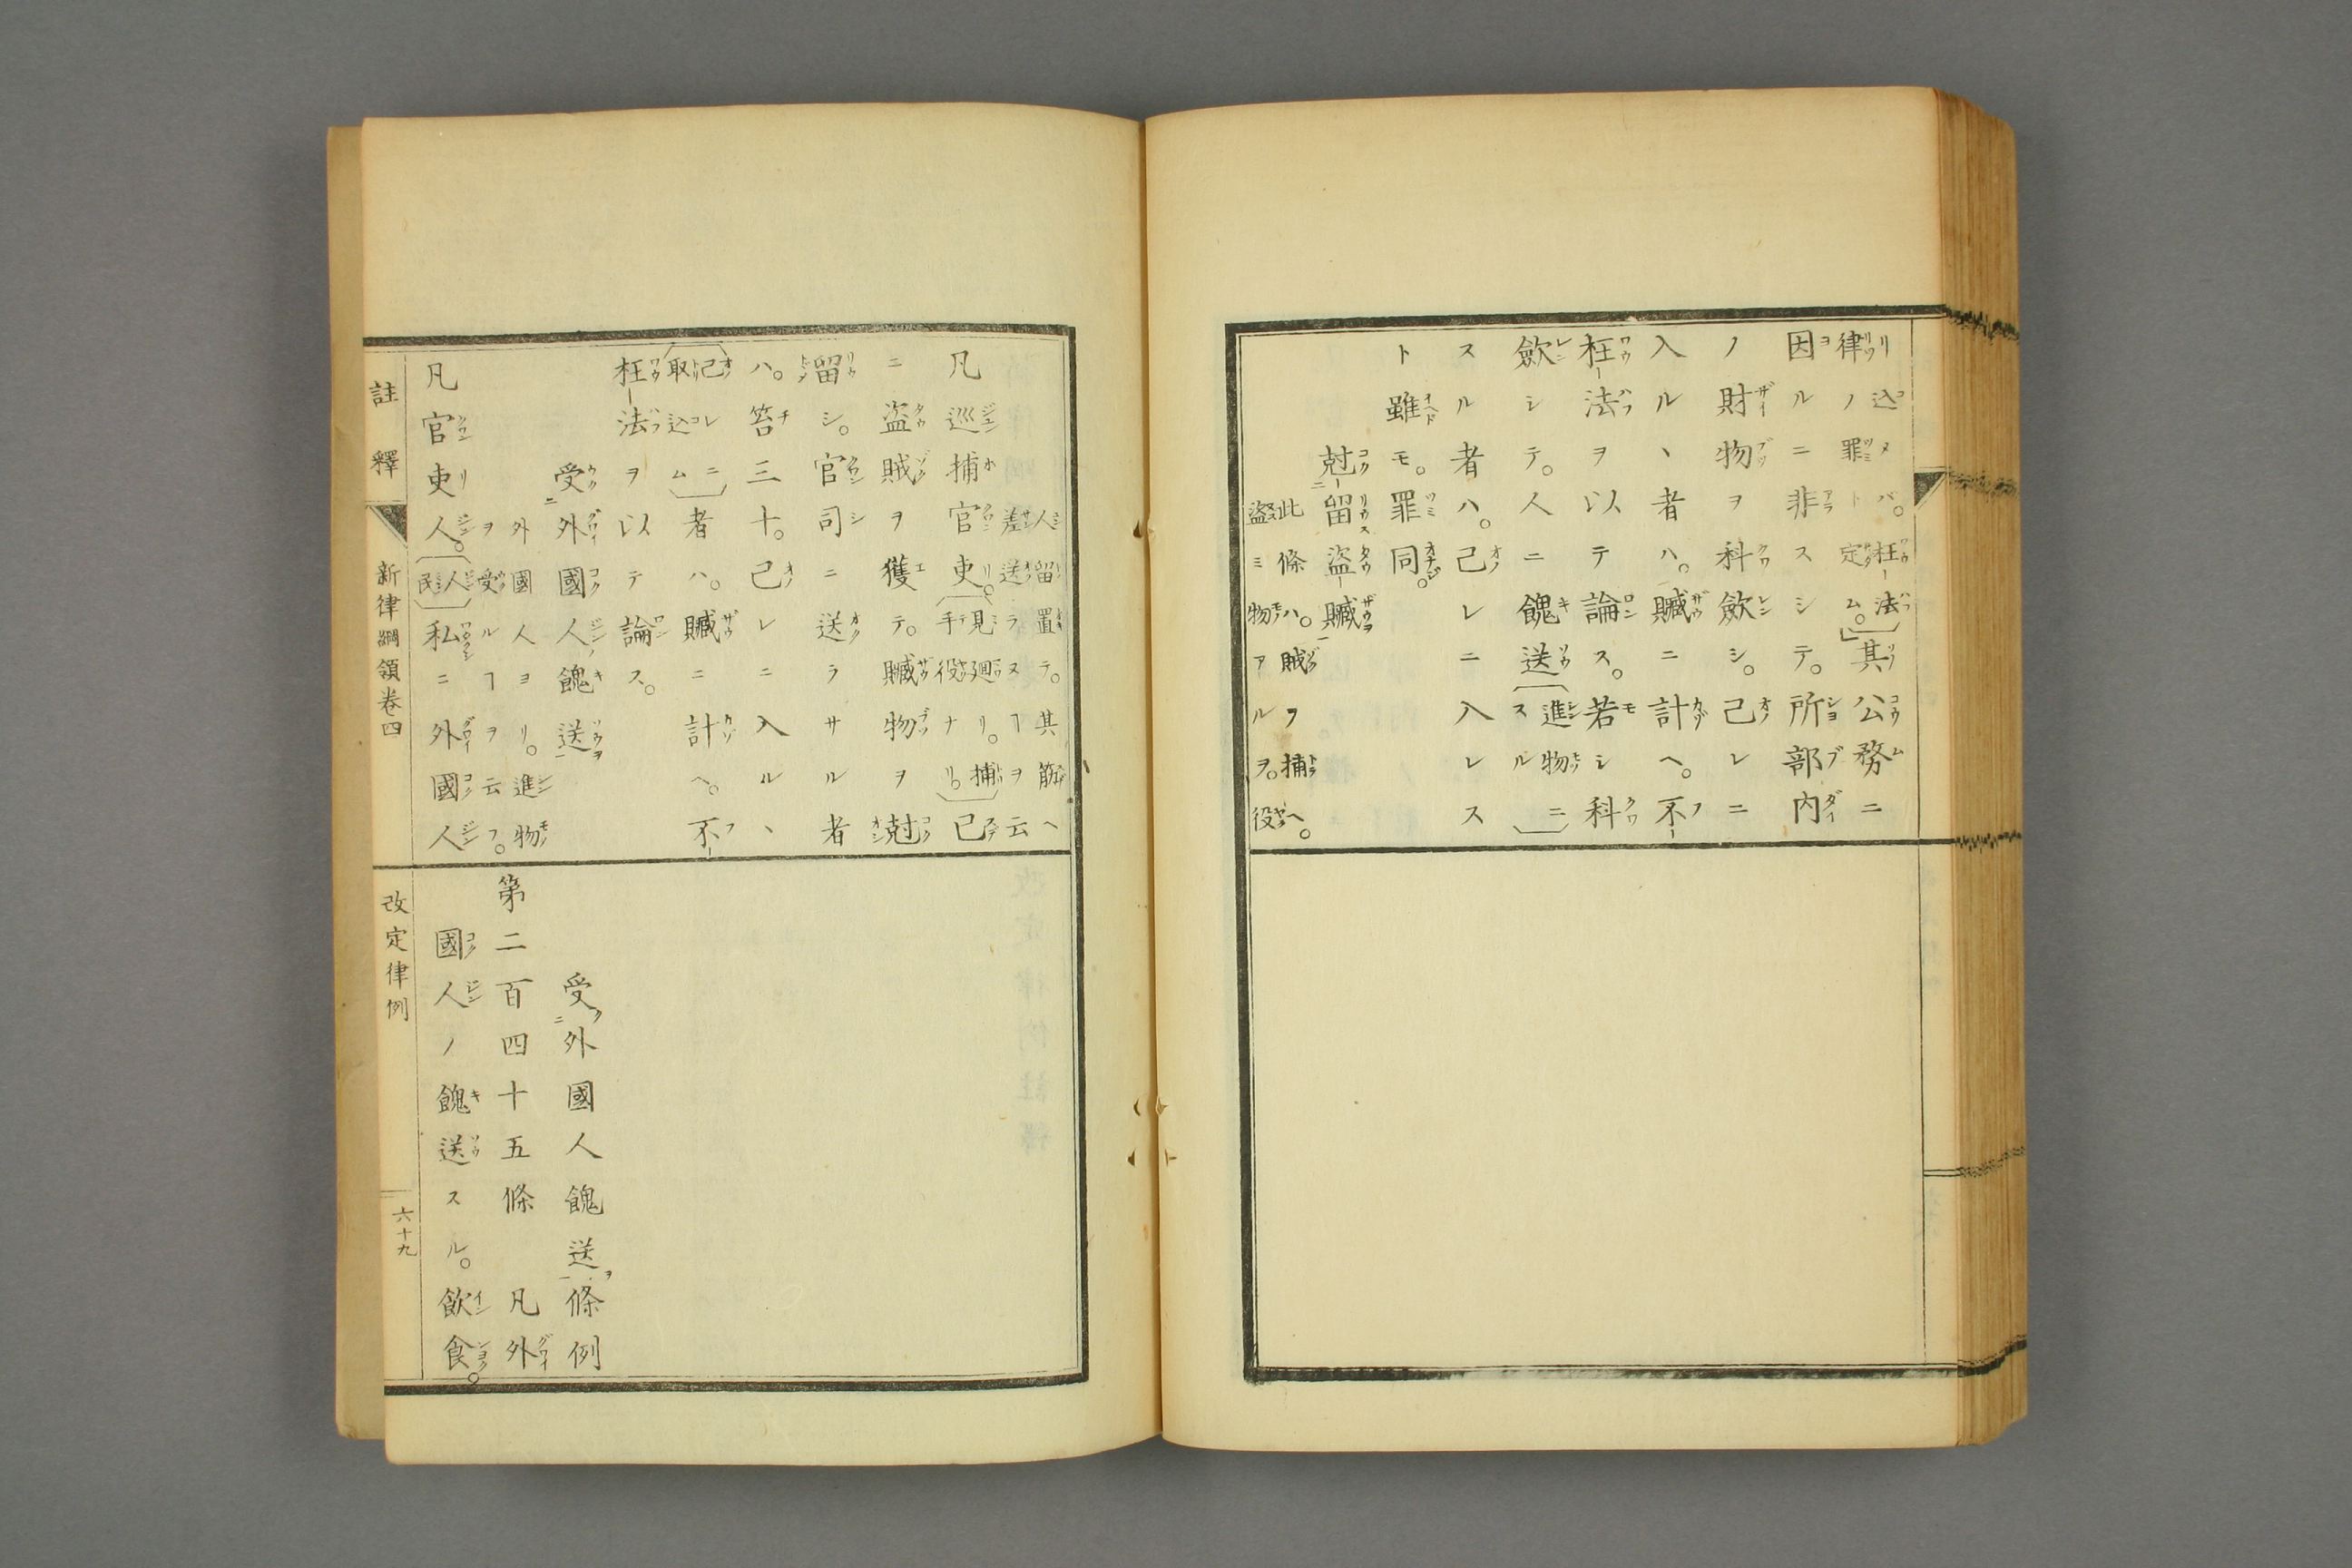 リ込メバ。枉法
律ノ罪ト定ム。」其公務ニ
因ルニ非スシテ。所部内
ノ財物ヲ科斂シ。己レニ
入ルヽ者ハ。贓ニ計ヘ。不
枉法ヲ以テ論ス。若シ科
斂シテ。人ニ餽送進物ニスル
スル者ハ。己レニ入レス
ト雖モ。罪同。
尅留盗贓
此條ハ。賊ヲ捕ヘ。
盜ミ物アルヲ。役
人留置テ。其筋ヘ
差送ラヌヿヲ云
凡巡捕官吏。見廻リ。捕手役ナリ。已
ニ盗賊ヲ獲テ。贓物ヲ尅
留シ。官司ニ送ラサル者
ハ。笞三十。己レニ入ルヽ
己レニ取込ム者ハ。贓ニ計ヘ。不
枉法ヲ以テ論ス。
受外國人餽送
外國人ヨリ。進物
ヲ受ルヿヲ云フ。
凡官吏人。人民私ニ外國人
受外國人餽送條例
第二百四十五條 凡外
國人ノ餽送スル。飲食。
註釋
新律綱領卷四
改定律例
六十九